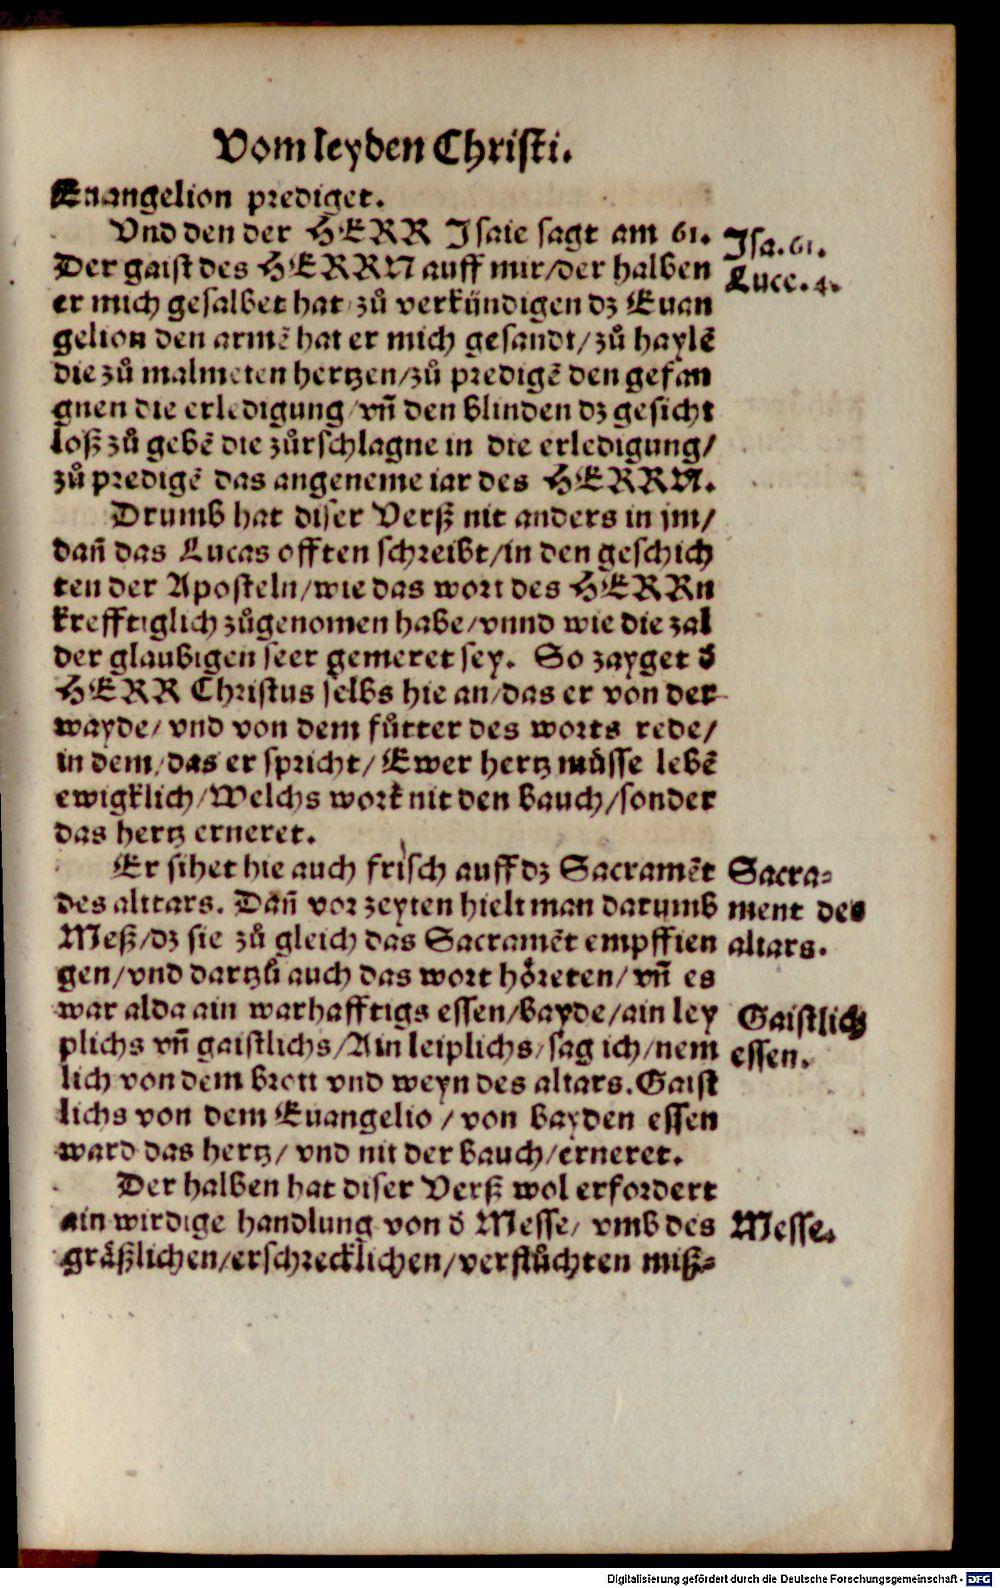 Vom leyden Christi.
Euangelion prediget.
Vnd den der HERR Isaie sagt am 61.
Isa. 61.
Der gaist des HERRN auff mir/der halben
Luce. 4.
er mich gesalbet hat/zů verkündigen dz Euan
gelion den armē hat er mich gesandt/zů haylē
die zů malmeten hertzen/zů predigē den gefan
gnen die erledigung/vn̄ den blinden dz gesicht
loß zů gebē die zůrschlagne in die erledigung/
zů predigē das angeneme iar des HERRN.
Drumb hat diser Verß nit anders in jm/
dan̄ das Lucas offten schreibt/in den geschich
ten der Aposteln/wie das wort des HERRn
krefftiglich zůgenomen habe/vnnd wie die zal
der glaubigen seer gemeret sey. So zayget d̄
HERR Christus selbs hie an/das er von der
wayde/vnd von dem fůtter des worts rede/
in dem/das er spricht/Ewer hertz můsse lebē
ewigklich/Welchs work nit den bauch/sonder
das hertz erneret.
Er sihet hie auch frisch auff dz Sacramēt
Sacra-
des alttars. Dan̄ vor zeyten hielt man darumb
ment des
Meß/dz sie zů gleich das Sacramēt empffien
altars.
gen/vnd dartzů auch das wort hőreten/vn̄ es
war alda ain warhafftigs essen/bayde/ain ley
Gaistlich
plichs vn̄ gaistlichs/Ain leiplichs/sag ich/nem
essen.
lich von dem brott vnd weyn des altars. Gaist
lichs von dem Euangelio/von bayden essen
ward das hertz/vnd nit der bauch/erneret.
Der halben hat diser Verß wol erfordert
ain wirdige handlung von d̄ Messe/vmb des
Messe.
gräßlichen/erschrecklichen/verflůchten miß-
Digitalisierung gefördert durch die Deutsche Forschungsgemeinschaft - DFG